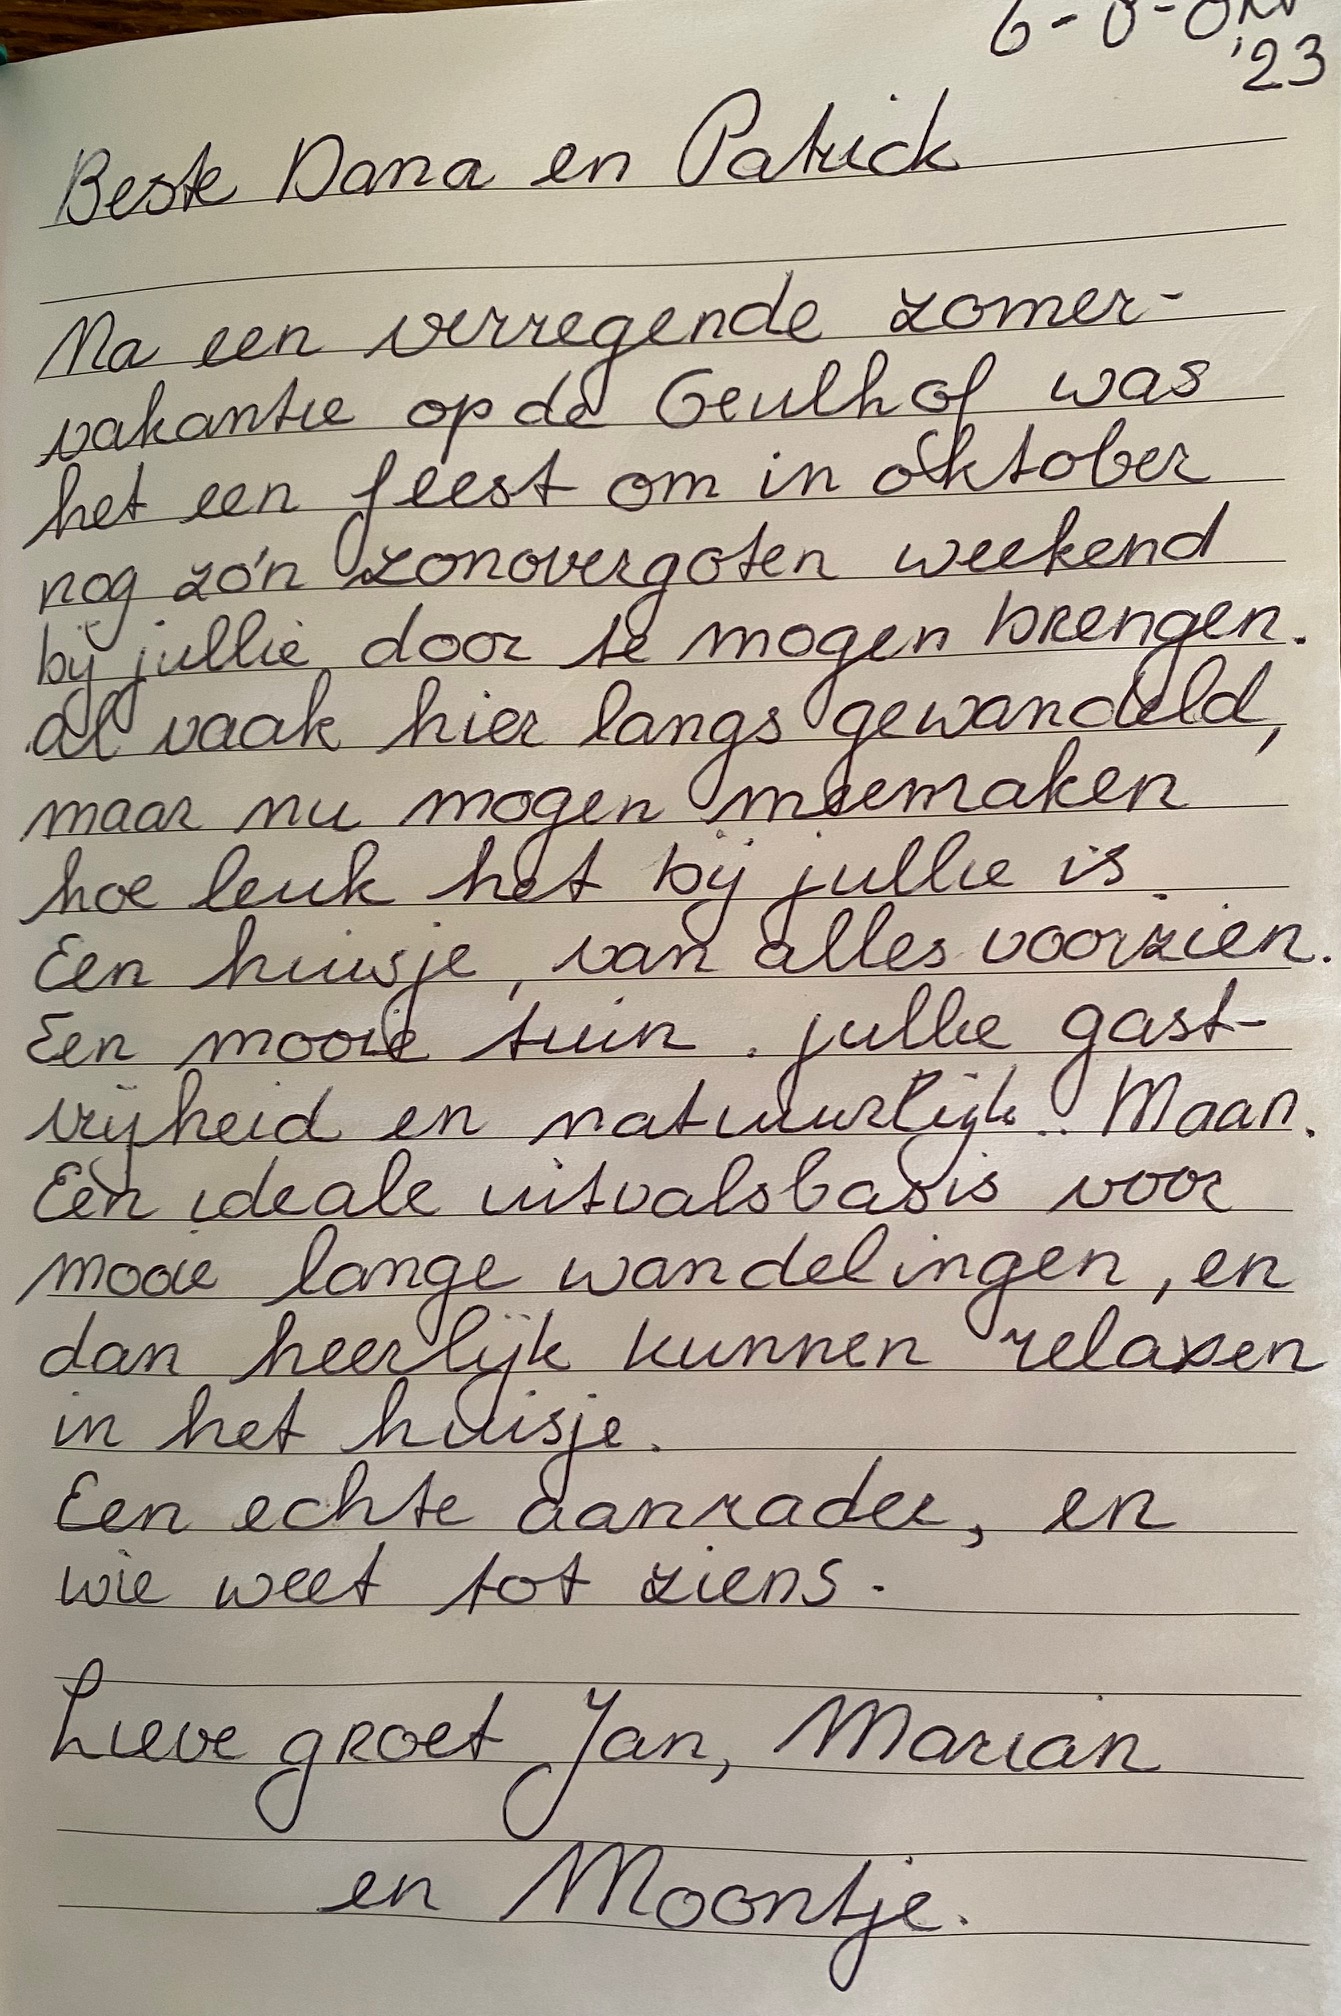 6-8-okt
'23
Beste Dana en Patrick
Na een verregende zomer-
vakantie op de Geulhof was
het een feest om in oktober
nog zo'n zonovergoten weekend
bij jullie door te mogen brengen.
al vaak hier langs gewandeld,
maar nu mogen meemaken
hoe leuk het bij jullie is.
Een huisje, van alles voorzien.
Een mooie tuin. jullie gast-
vrijheid en natuurlijk.. Maan.
Een ideale uitvalsbasis voor
mooie lange wandelingen, en
dan heerlijk kunnen relaxen
in het huisje.
Een echte aanrader, en
wie weet tot ziens.
Lieve groet Jan, Marian
en Moontje.